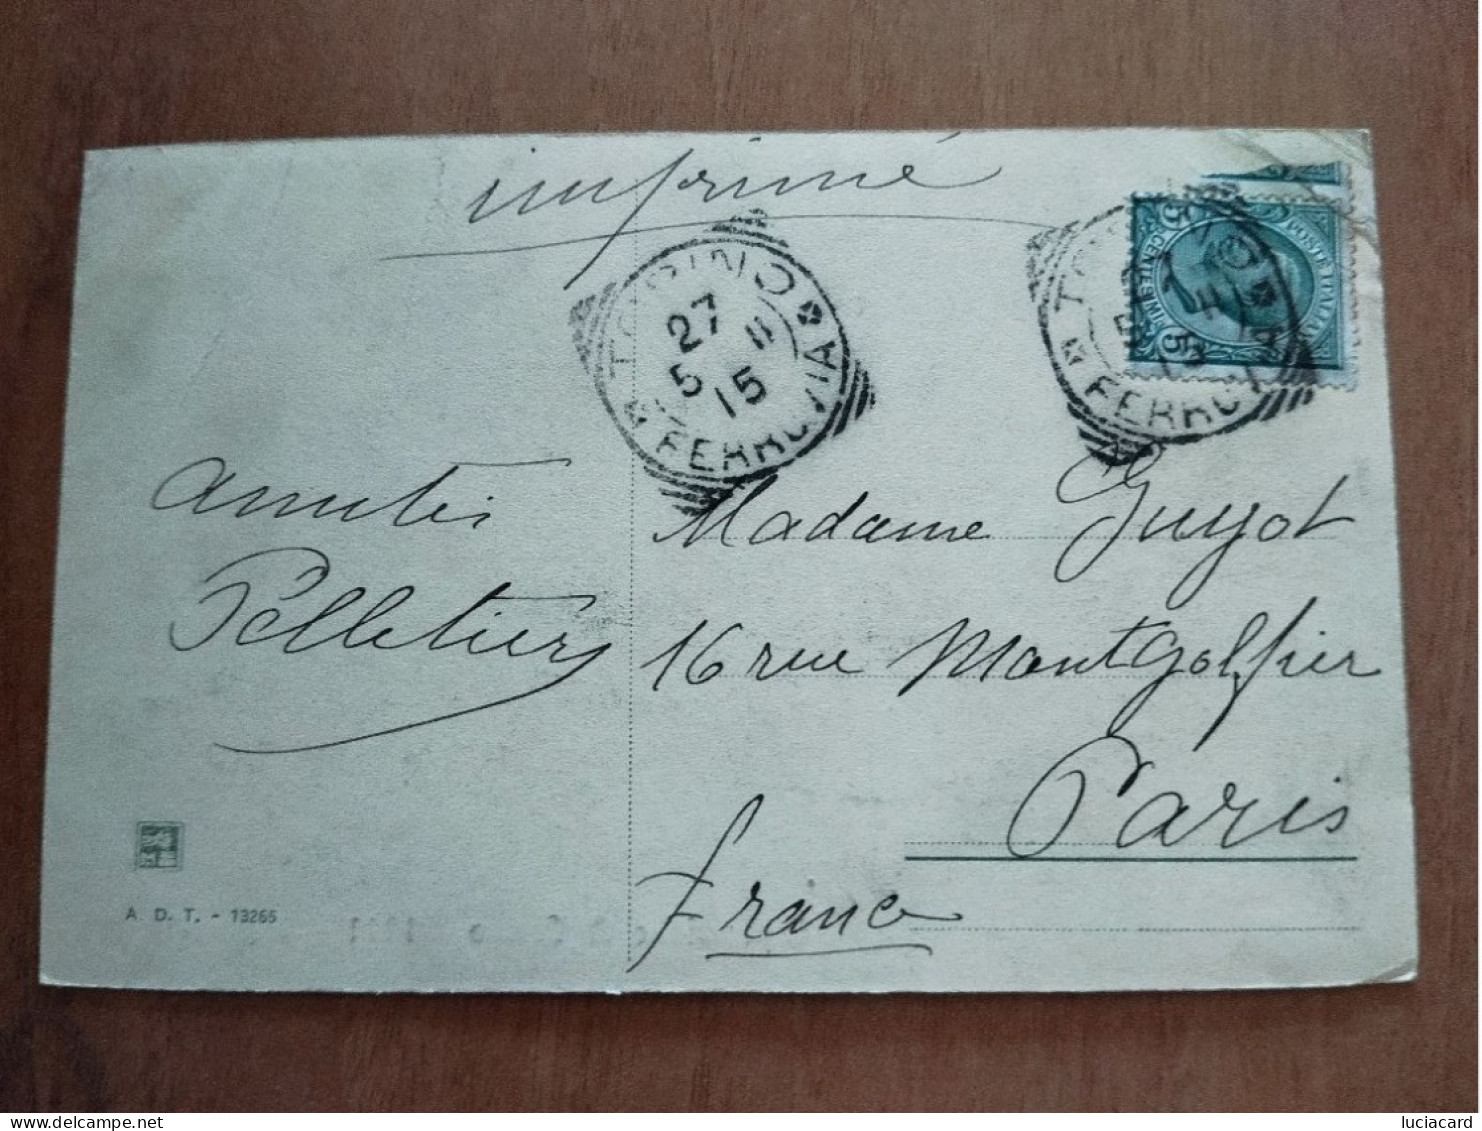 imprimé
TORINO
27
5 11
15
FERROVIA
TORINO
FERROVIA
5 CENTESIMI 5
POSTE ITALIANE
Amitiés
Pelletier
Madame Guyot
16 rue Montgolfier
Paris
France
A. D. T. - 13265
luciacard